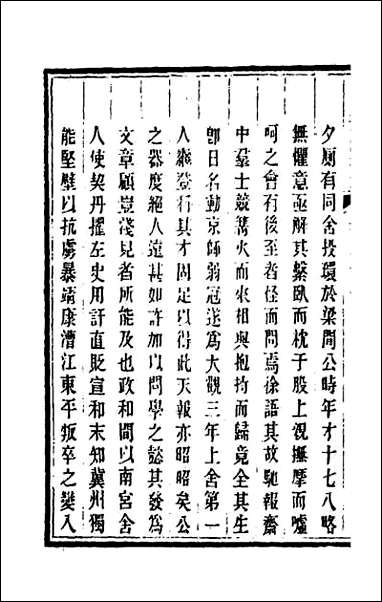 夕廁有同舍投環於梁間公時年才十七八略
無懼意亟解其繫臥而枕于股上視撫摩而噓
呵之會有後至者怪而問焉徐語其故馳報齋
中羣士競篝火而來相與抱持而歸竟全其生
卽日名動京師弱冠遂爲大觀三年上舍第一
人繼登行其才固足以得此天報亦昭昭矣公
之器度絕人遠甚如許加以問學之懿其發爲
文章顧豈淺見者所能及也政和間以南宮舍
人使契丹擢左史用訐直貶宣和末知冀州獨
能堅壁以抗虜暴靖康漕江東平叛卒之變入